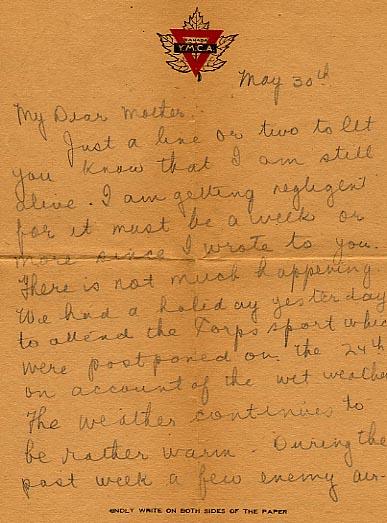 CANADA
Y.M.C.A.
May 30th
My Dear Mother.
Just a line or two to let
you know that I am still
alive. I am getting negligent
for it must be a week or
more since I wrote to you.
There is not much happening
We had a holiday yesterday
to attend the Corps sport whic
were postponed on the 24th
on account of the wet weather
The weather continues to
be rather warm. During the
past week a few enemy air-
NDLY WRITE ON BOTH SIDES OF THE PAPER